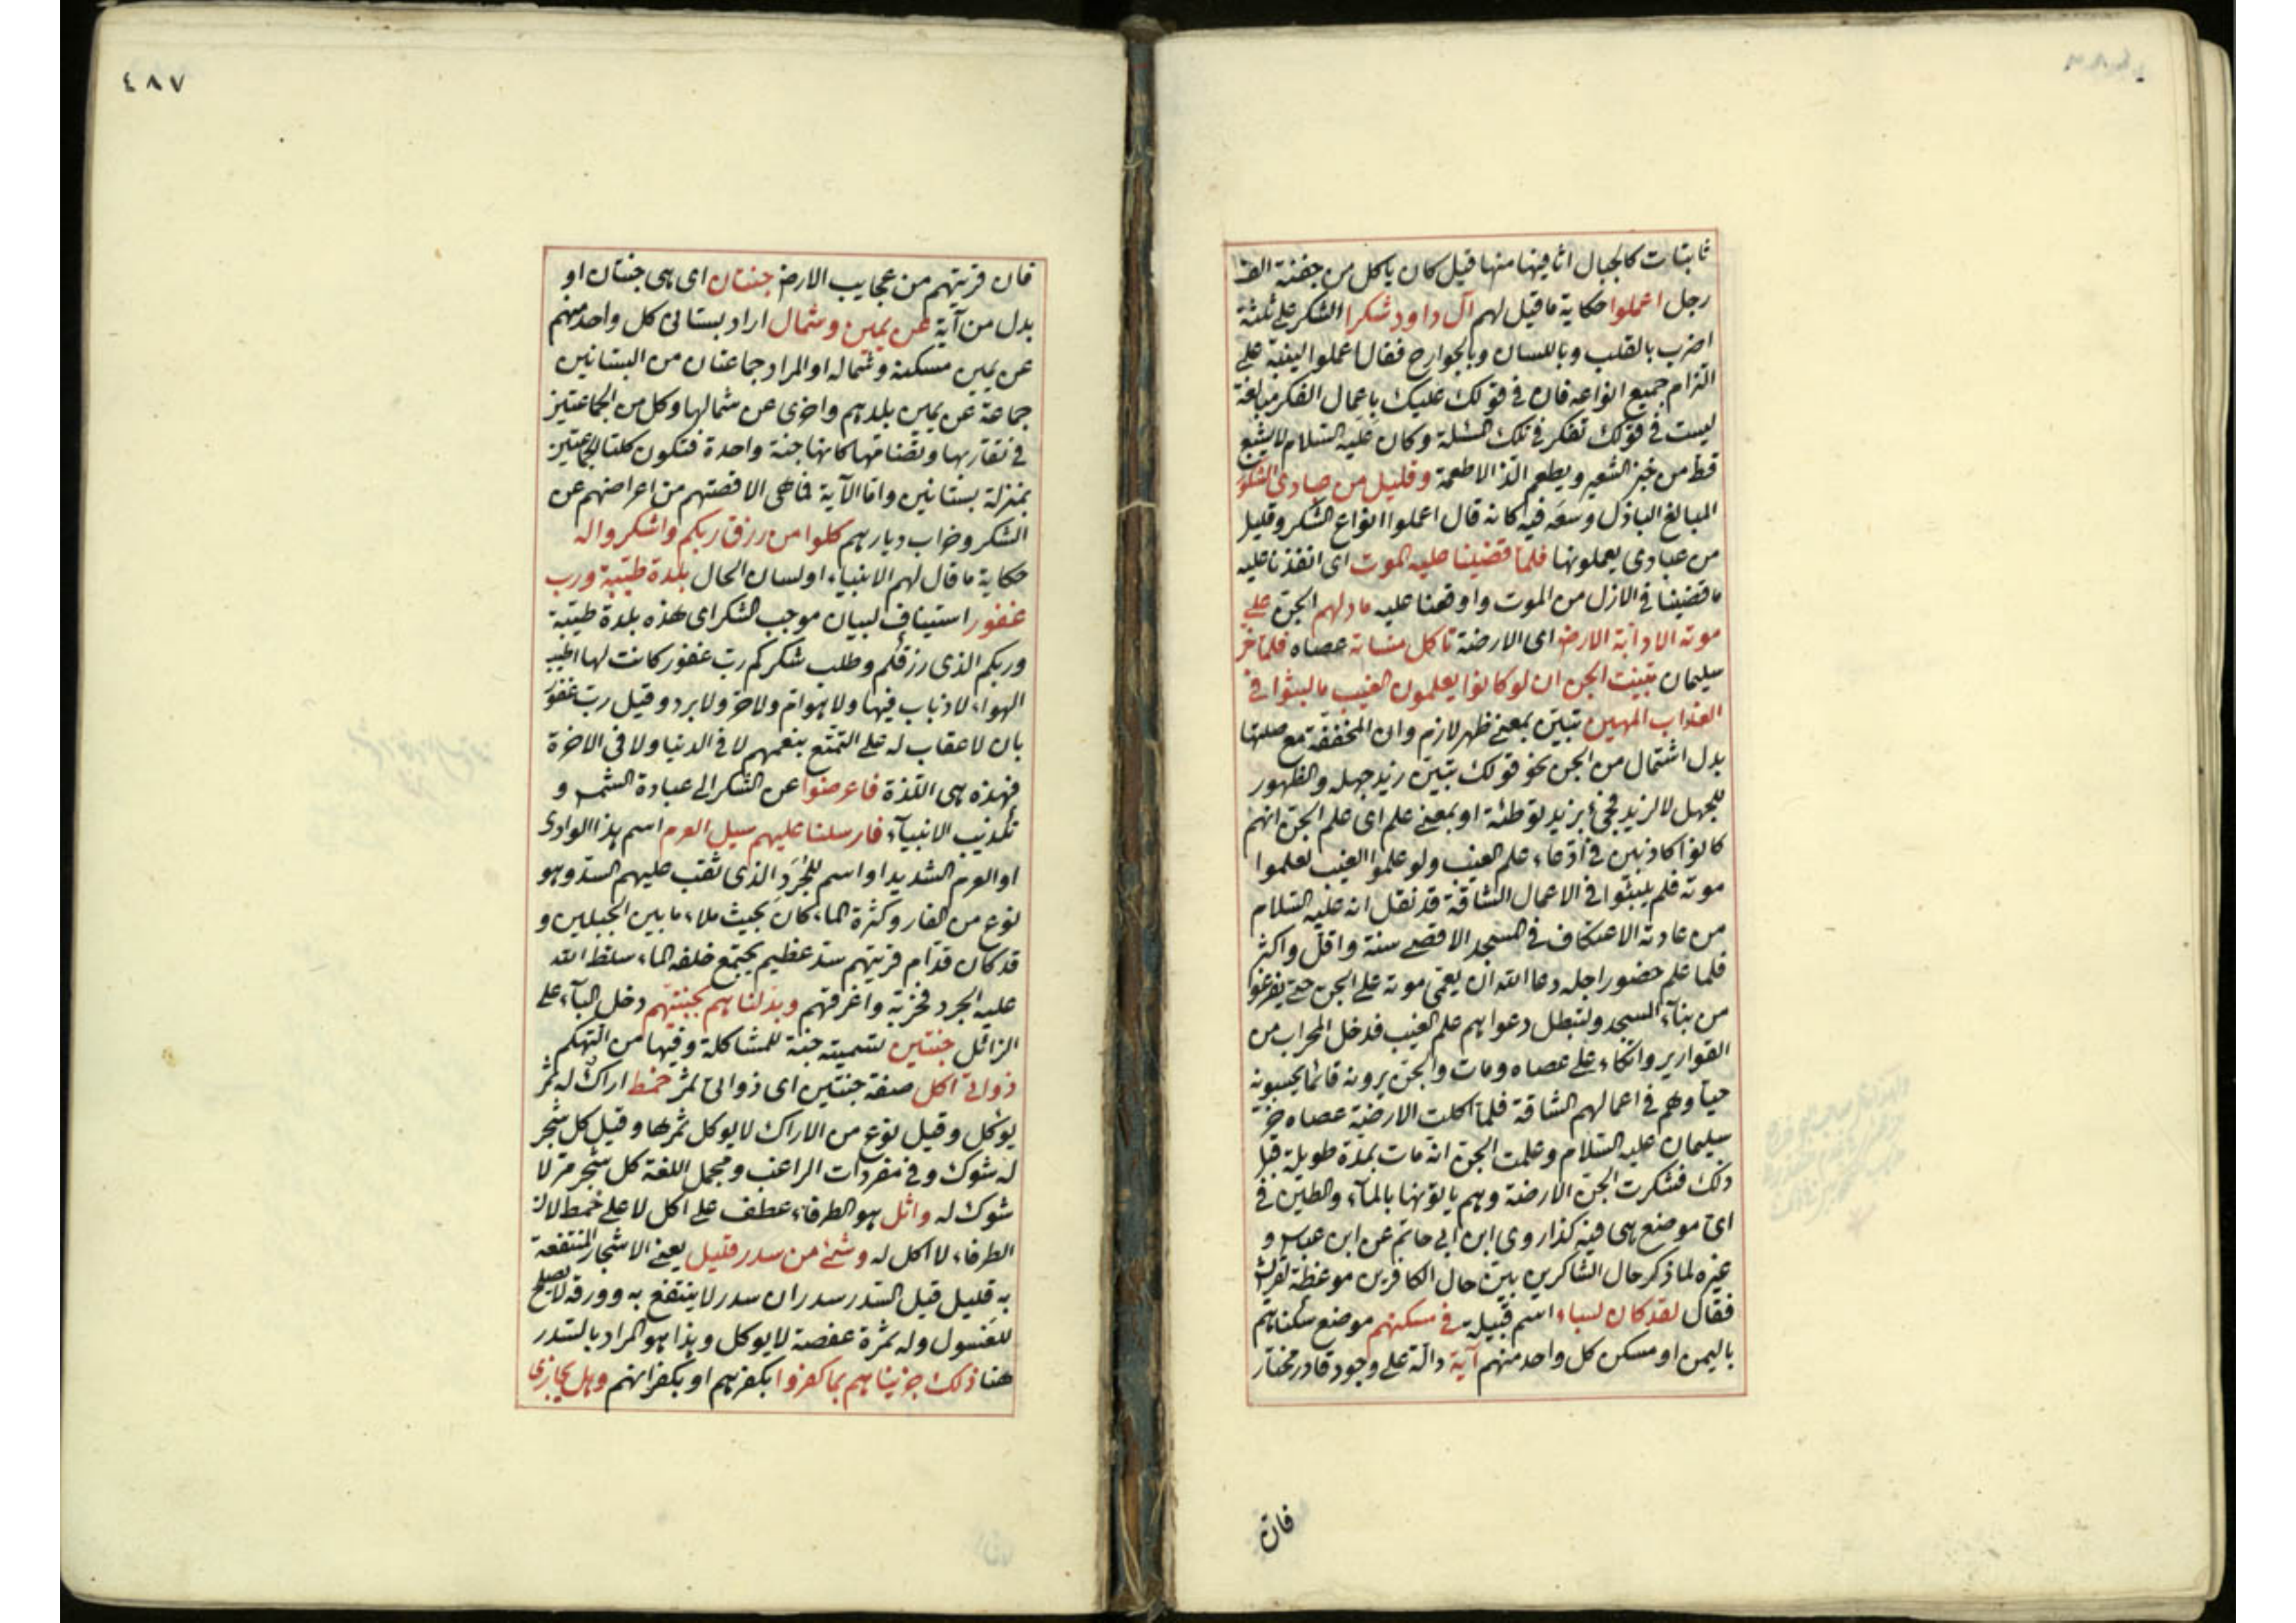 ثابتات كالجبال اثافيها منها قيل كان ياكل من جفنة الف
رجل اعملوا حكاية ما قيل لهم آل داود شكرا الشكر على ثلثة
اضرب بالقلب وباللسان وبالجوارح فقال اعملوا ليفيد على
التزام جميع انواعه فان في قولك عليك باعمال الفكر مبالغة
ليست في قولك تفكر في تلك المسئلة وكان عليه السلام لا يشبع
قط من خبز الشعير ويطعم الذ الاطعمة وقليل من عبادى الشكور
المبالغ الباذل وسعه فيه كانه قال اعملوا انواع الشكر وقليل
من عبادى يعملونها فلما قضينا عليه الموت اى انفذنا عليه
ما قضينا في الازل من الموت واوقعنا عليه ما دلهم الجن على
موته الا دآبة الارض اى الارضة تاكل منساته عصاه فلما خر
سليمان تبينت الجن ان لو كانوا يعلمون الغيب ما لبثوا في
العذاب المهين تبيّن بمعنى ظهر لازم وان المخففة مع صلتها
بدل اشتمال من الجن نحو قولك تبيّن زيد جهله والظهور
للجهل لا لزيد فجئ بزيد توطئة او بمعنى علم اى علم الجن انهم
كانوا كاذبين في ادّعاء علم الغيب ولو علموا الغيب لعلموا
موته فلم يلبثوا في الاعمال الشاقة قد نقل انه عليه السلام
من عادته الاعتكاف في المسجد الاقصى سنة واقل واكثر
فلما علم حضور اجله دعا الله ان يعمى موته على الجن حتى يفرغوا
من بنآء المسجد ولتبطل دعواهم علم الغيب فدخل المحراب من
القوارير واتكاء على عصاه ومات والجن يرونه قائما يحسبونه
حيا وهم في اعمالهم الشاقة فلما اكلت الارضة عصاه خر
سليمان عليه السلام وعلمت الجن انه مات بمدة طويلة قبل
ذلك فشكرت الجن الارضة وهم ياتونها بالمآء والطين في
اى موضع هى فيه كذا روى ابن ابى حاتم عن ابن عباس و
غيره لما ذكر حال الشاكرين بيّن حال الكافرين موعظة لقريش
فقال لقد كان لسباء اسم قبيلة في مسكنهم موضع سكناهم
باليمن او مسكن كل واحد منهم آية دالّة على وجود قادر مختار
فان
٤٨٧
فان قريتهم من عجايب الارض جنتان اى هى جنتان او
بدل من آية عن يمين وشمال اراد بستانى كل واحد منهم
عن يمين مسكنه وشماله او المراد جماعتان من البستانين
جماعة عن يمين بلدهم واخرى عن شمالها وكل من الجماعتين
في تقاربها وتضامّها كانها جنة واحدة فتكون كلتا الجماعتين
بمنزلة بستانين واما الآية فما هى الا قصتهم من اعراضهم عن
الشكر وخراب ديارهم كلوا من رزق ربكم واشكروا له
حكاية ما قال لهم الانبياء او لسان الحال بلدة طيّبة ورب
غفور استيناف لبيان موجب الشكر اى هذه بلدة طيّبة
وربكم الذى رزقكم وطلب شكركم ربّ غفور كانت لها اطيب
الهواء لا ذباب فيها ولا هوام ولا حر ولا برد وقيل رب غفور
بان لا عقاب له على التمتع بنعمهم لا في الدنيا ولا في الاخرة
فهذه هى اللذة فاعرضوا عن الشكر الى عبادة الشمس و
تكذيب الانبيآء فارسلنا عليهم سيل العرم اسم هذا الوادى
او العرم الشديد او اسم للجُرَذ الذى نقب عليهم السد وهو
نوع من الفار وكثرة الماء كان بحيث ملاء ما بين الجبلين و
قد كان قدّام قريتهم سد عظيم يجتمع خلفه الماء سلط الله
عليه الجرد فخربه واغرقهم وبدّلناهم بجنتيهم دخل البآء على
الزائل جنتين تسميته جنة للمشاكلة وفيها من التهكم
ذواتى اكل صفة جنتين اى ذواتى ثمر خمط اراك له ثمر
يوكل وقيل نوع من الاراك لا يوكل ثمرها وقيل كل شجر
له شوك وفي مفردات الراغب ومجمل اللغة كل شجر مر لا
شوك له واثل هو الطرفاء عطف على اكل لا على خمط لان
الطرفاء لا اكل له وشئ من سدر قليل يعنى الاشجار المنتفعة
به قليل قيل السدر سدران سدر لا ينتفع به وورقه لا يصلح
للغسول وله ثمرة عفصة لا يوكل وهذا هو المراد بالسدر
هنا ذلك جزيناهم بما كفروا بكفرهم او بكفرانهم وهل يجازى